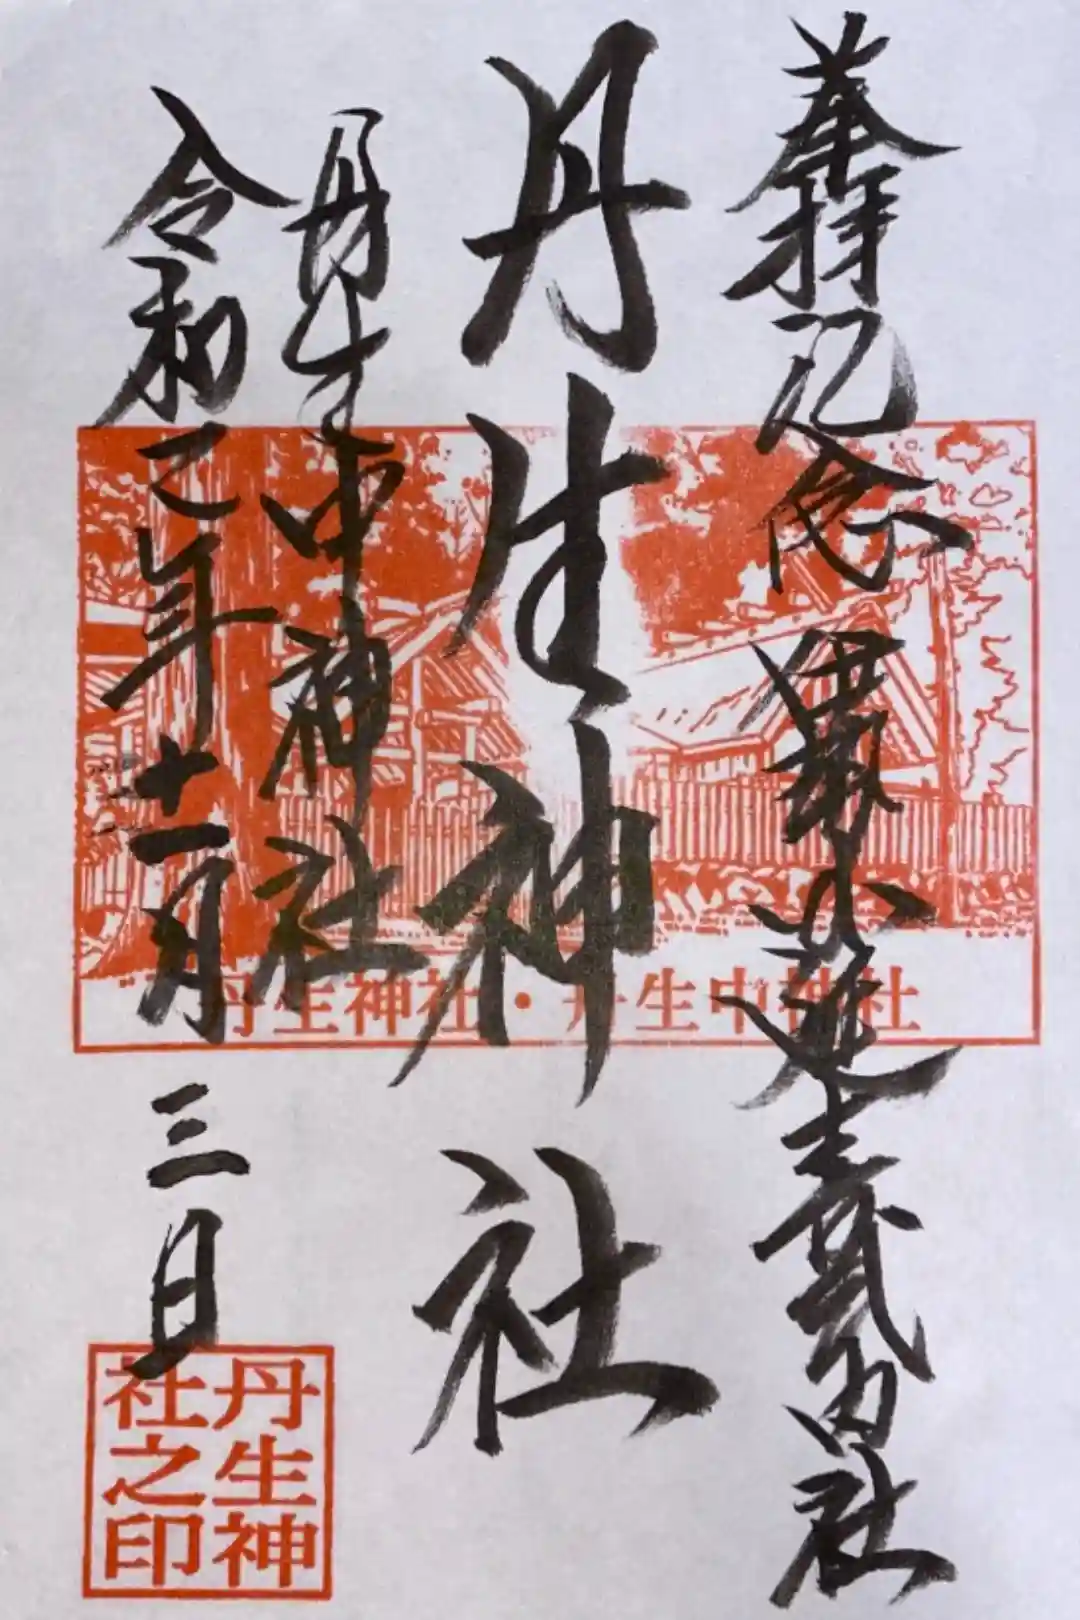 奉拝記念 伊勢 延喜式内社
丹生神社
丹生中神社
令和二年十一月三日
丹生神社・丹生中神社
丹生神
社之印